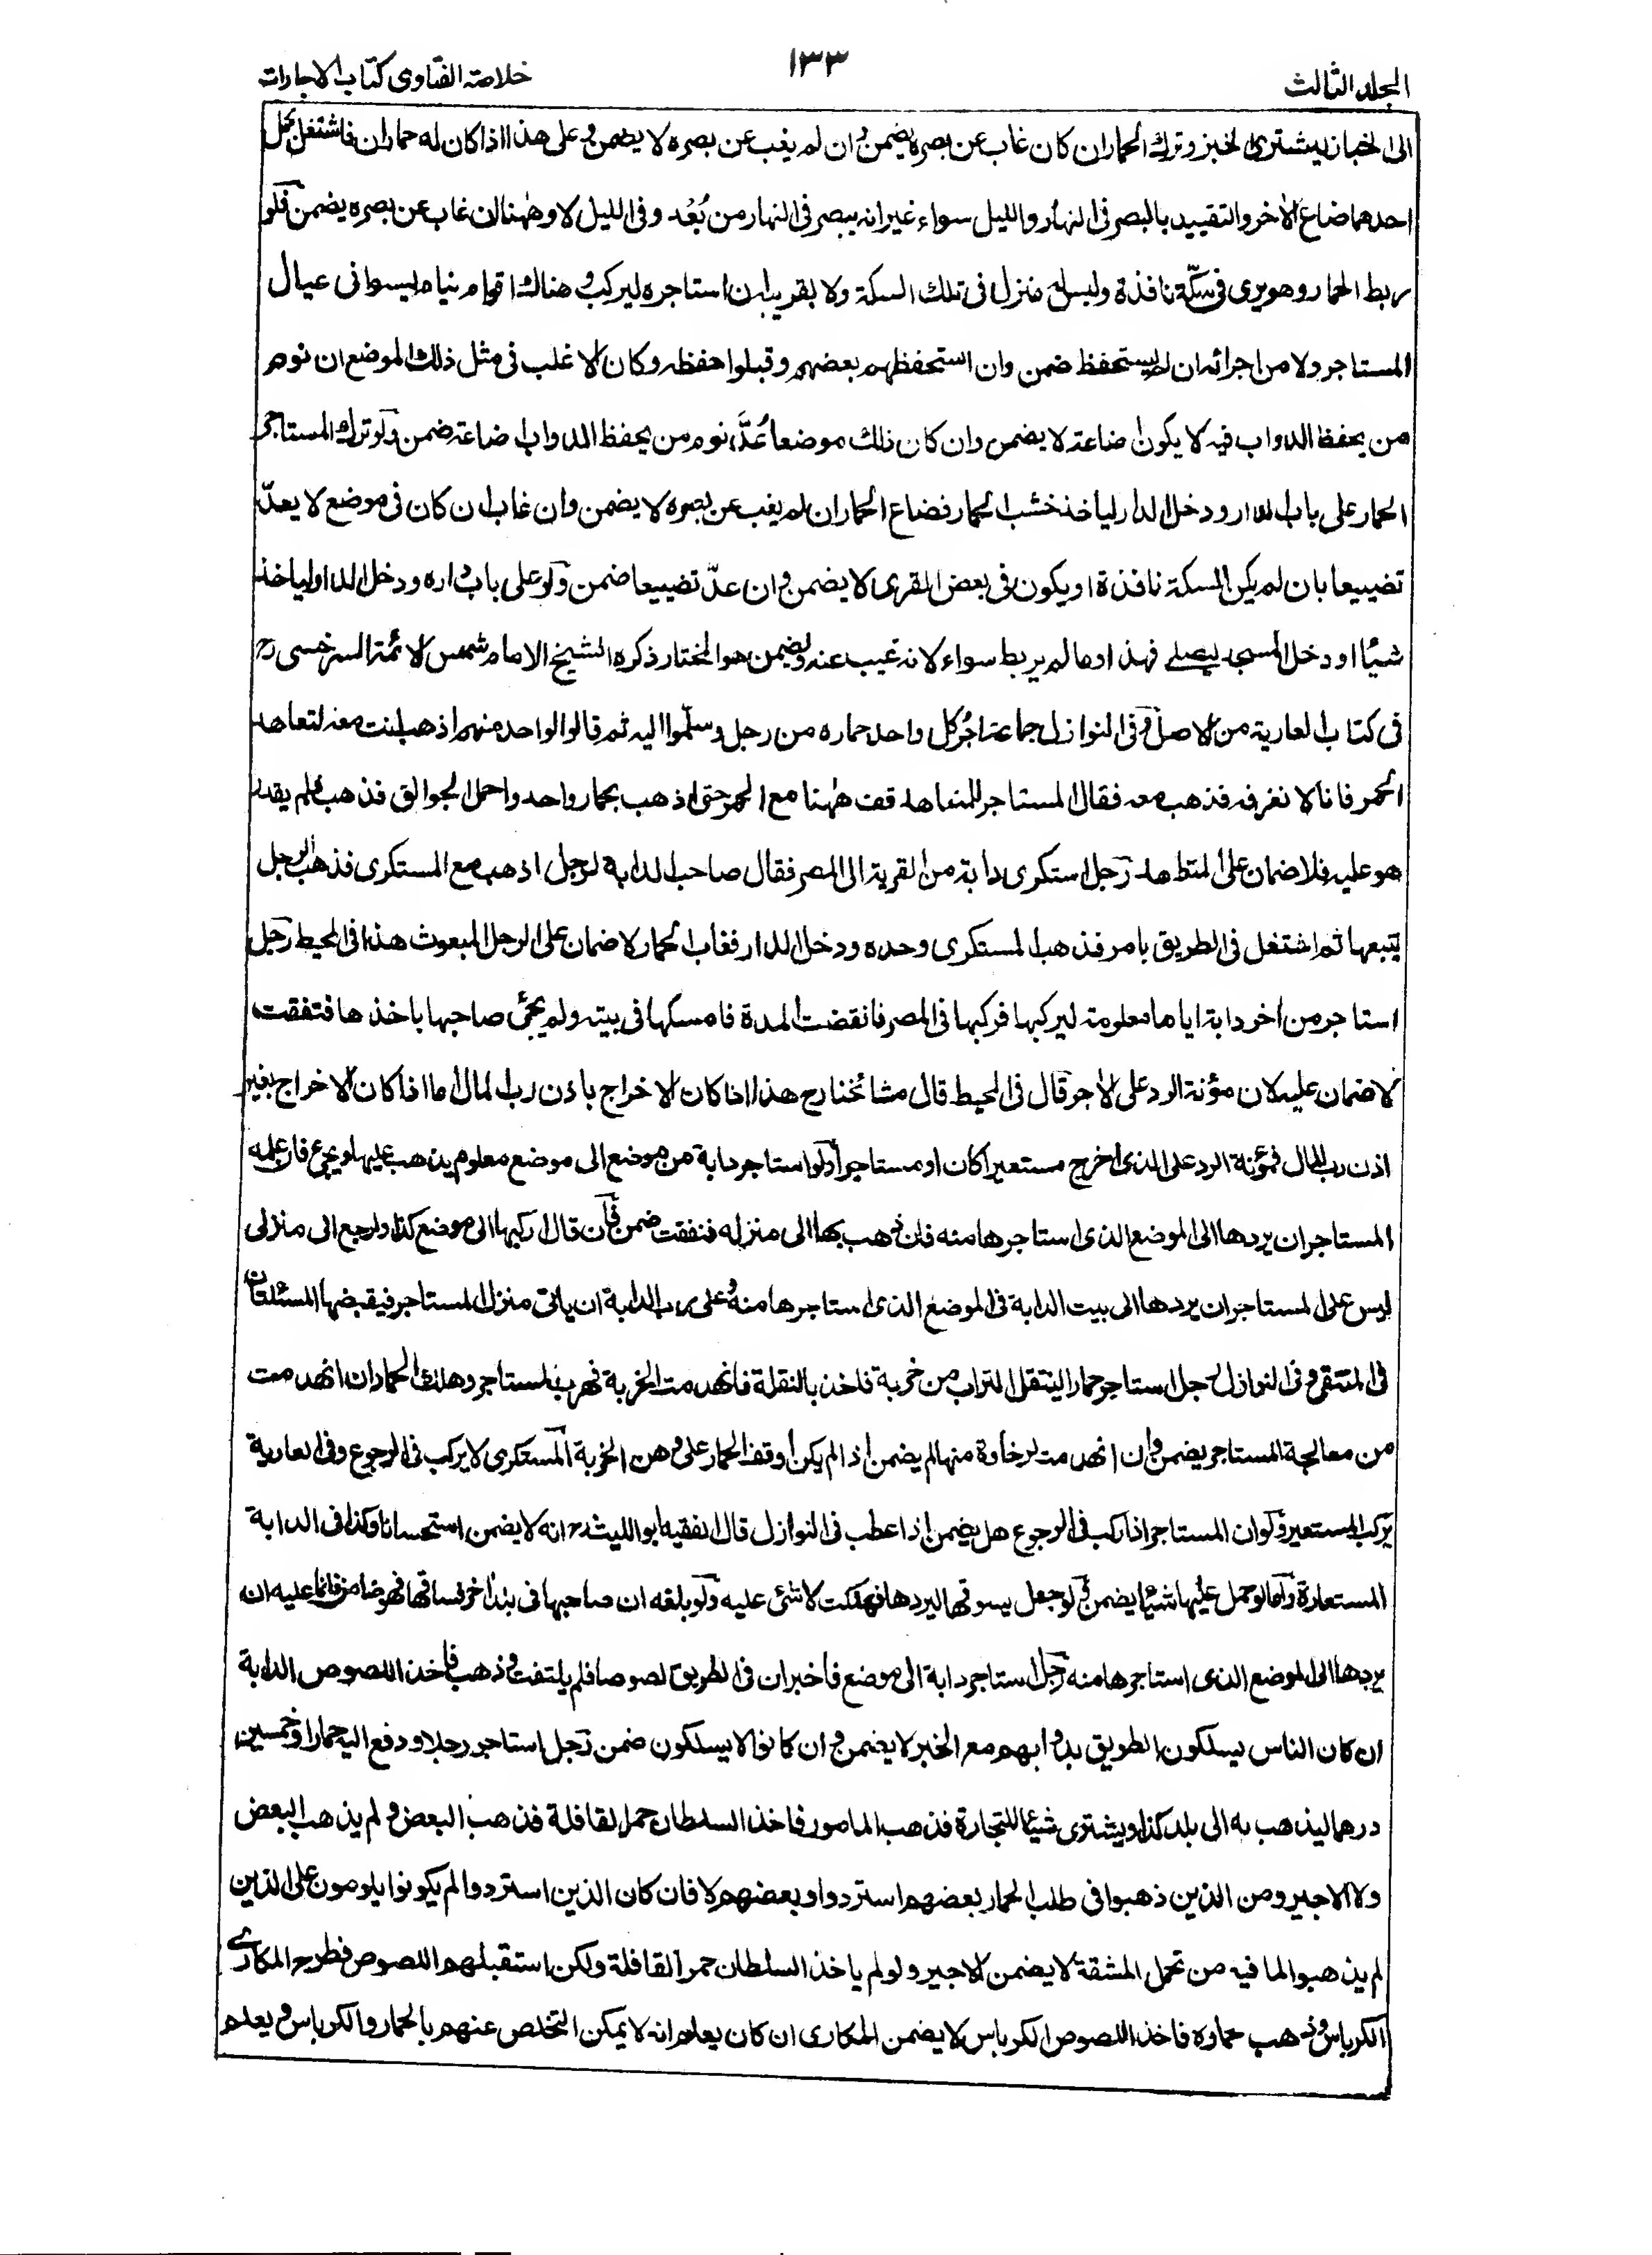 المجلد الثالث
١٣٣
خلاصة الفتاوى كتاب الاجارات
الى الخباز ليشترى الخبز وترك الحمار ان كان غاب عن بصره يضمن وان لم يغب عن بصره لا يضمن وعلى هذا اذا كان له حماران فاشتغل بحمل
احدهما ضاع الاخر والتقييد بالبصر فى النهار والليل سواء غير انه يبصر فى النهار من بُعْد وفى الليل لا وههنا ان غاب عن بصره يضمن فلو
ربط الحمار وهو يرى فى سكّة نافذة وليس له منزل فى تلك السكة ولا بقريب ان استاجره ليركب وهناك اقوام نيام ليسوا فى عيال
المستاجر ولا من اجرائه ان لم يستحفظ ضمن وان استحفظهم بعضهم وقبلوا حفظه وكان الاغلب فى مثل ذلك الموضع ان نوم
من يحفظ الدواب فيه لا يكون اضاعة لا يضمن وان كان ذلك موضعا عُدَّ نوم من يحفظ الدواب اضاعة ضمن ولو ترك المستاجر
الحمار على باب الدار ودخل الدار لياخذ خشب الحمار فضاع الحمار ان لم يغب عن بصره لا يضمن وان غاب ان كان فى موضع لا يعدّ
تضييعا بان لم يكن السكة نافذة او يكون فى بعض القرى لا يضمن وان عدّ تضييعا ضمن ولو على باب داره ودخل الدار لياخذ
شيئا او دخل المسجد ليصلے فهذا وما لم يربط سواء لانه غيب عنه ويضمن هو المختار ذكره الشيخ الامام شمس الائمة السرخسى رح
فى كتاب العارية من الاصل وفى النوازل جماعة اجر كل واحد حماره من رجل وسلّموا اليه ثم قالوا لواحد منهم اذهب انت معه لتعاهد
الحمر فانا لا نعرفه فذهب معه فقال المستاجر للمتعاهد قف ههنا مع الحمر حتى اذهب بحمار واحد واحمل الجوالق فذهب فلم يقدر
هو عليه فلا ضمان على المتعاهد رجل استكرى دابة من القرية الى المصر فقال صاحب الدابة لرجل اذهب مع المستكرى فذهب الرجل
يتبعها ثم اشتغل فى الطريق بامر فذهب المستكرى وحده ودخل الدار فغاب الحمار لا ضمان على الرجل المبعوث هذا فى المحيط رجل
استاجر من اخر دابة اياما معلومة ليركبها فركبها فى المصر فانقضت المدة فامسكها فى بيته ولم يجئ صاحبها باخذها فنفقت
لا ضمان عليه لان مؤنة الرد على الاجر قال فى المحيط قال مشائخنا رح هذا اذا كان الاخراج باذن رب المال اما اذا كان الاخراج بغير
اذن رب المال فمؤنة الرد على الذى اخرج مستعيرا كان او مستاجرا ولو استاجر دابة من موضع الى موضع معلوم يذهب عليها ويجئ فان على
المستاجر ان يردها الى الموضع الذى استاجرها منه فان ذهب بها الى منزله فنفقت ضمن فان قال اركبها الى موضع كذا وارجع الى منزلى
ليس على المستاجر ان يردها الى بيت الدابة فى الموضع الذى استاجرها منه وعلى رب الدابة ان ياتى منزل المستاجر فيقبضها المسئلتان
فى المنتقى وفى النوازل رجل استاجر حمارا لينقل التراب من خربة فاخذ بالنقلة فانهدمت الخربة فهرب المستاجر وهلك الحمار ان انهدمت
من معالجة المستاجر يضمن وان انهدمت لرخاوة منها لم يضمن اذا لم يكن اوقف الحمار على وهن الخربة المستكرى لا يركب فى الرجوع وفى العارية
يركب المستعير ولو ان المستاجر اذا ركب فى الرجوع هل يضمن اذا عطب فى النوازل قال الفقيه ابو الليث رح انه لا يضمن استحسانا وكذا فى الدابة
المستعارة واما لو حمل عليها شيئا يضمن ولو جعل يسوقها ليردها فهلكت لا شئ عليه ولو بلغه ان صاحبها فى بلد اخر فساقها فهو ضامن فانما عليه ان
يردها الى الموضع الذى استاجرها منه رجل استاجر دابة الى موضع فاخبر ان فى الطريق لصوصا فلم يلتفت وذهب فاخذ اللصوص الدابة
ان كان الناس يسلكون الطريق بدوابهم مع الخبر لا يضمن وان كانوا لا يسلكون ضمن رجل استاجر رجلا ودفع اليه حمارا وخمسين
درهما ليذهب به الى بلد كذا ويشترى شيئا للتجارة فذهب المامور فاخذ السلطان حمر القافلة فذهب البعض ولم يذهب البعض
ولا الاجير ومن الذين ذهبوا فى طلب الحمار بعضهم استردوا وبعضهم لا فان كان الذين استردوا لم يكونوا يلومون على الذين
لم يذهبوا لما فيه من تحمل المشقة لا يضمن الاجير ولو لم ياخذ السلطان حمر القافلة ولكن استقبلهم اللصوص فطرح المكارے
الكرباس وذهب حماره فاخذ اللصوص الكرباس لا يضمن المكارى ان كان يعلم انه لا يمكن التخلص عنهم بالحمار والكرباس ويعلم